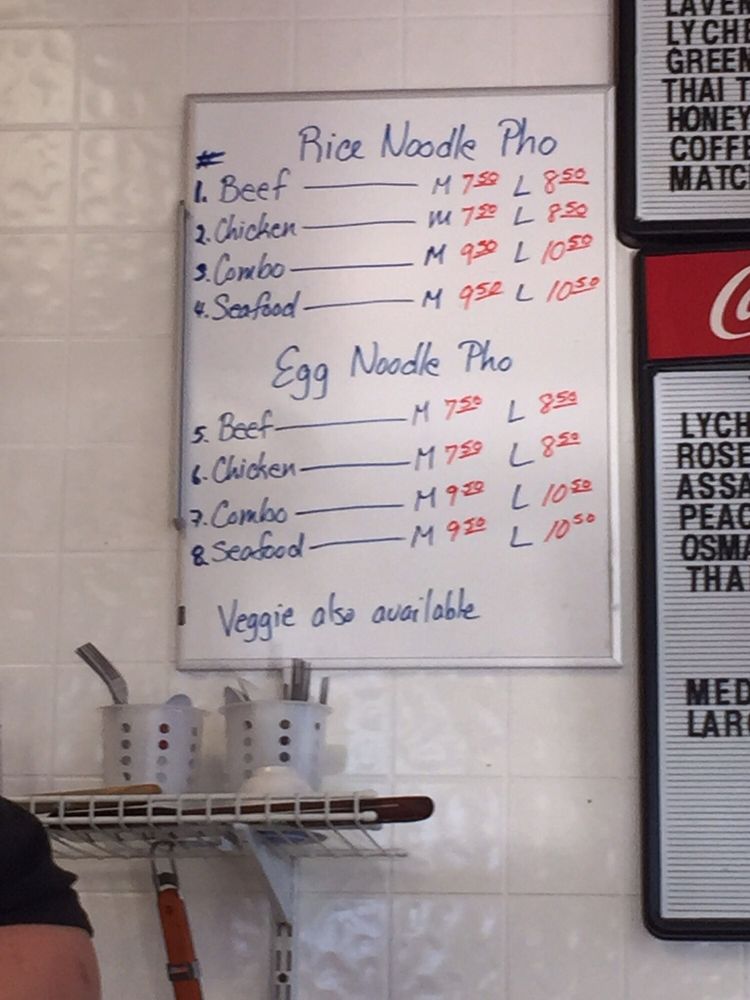 # Rice Noodle Pho
1. Beef M 7.50 L 8.50
2. Chicken M 7.50 L 8.50
3. Combo M 9.50 L 10.50
4. Seafood M 9.50 L 10.50
Egg Noodle Pho
5. Beef M 7.50 L 8.50
6. Chicken M 7.50 L 8.50
7. Combo M 9.50 L 10.50
8. Seafood M 9.50 L 10.50
Veggie also available
LAVEN
LYCHE
GREEN
THAI T
HONEY
COFFE
MATC
LYCH
ROSE
ASSA
PEAC
OSMA
THA
MED
LAR